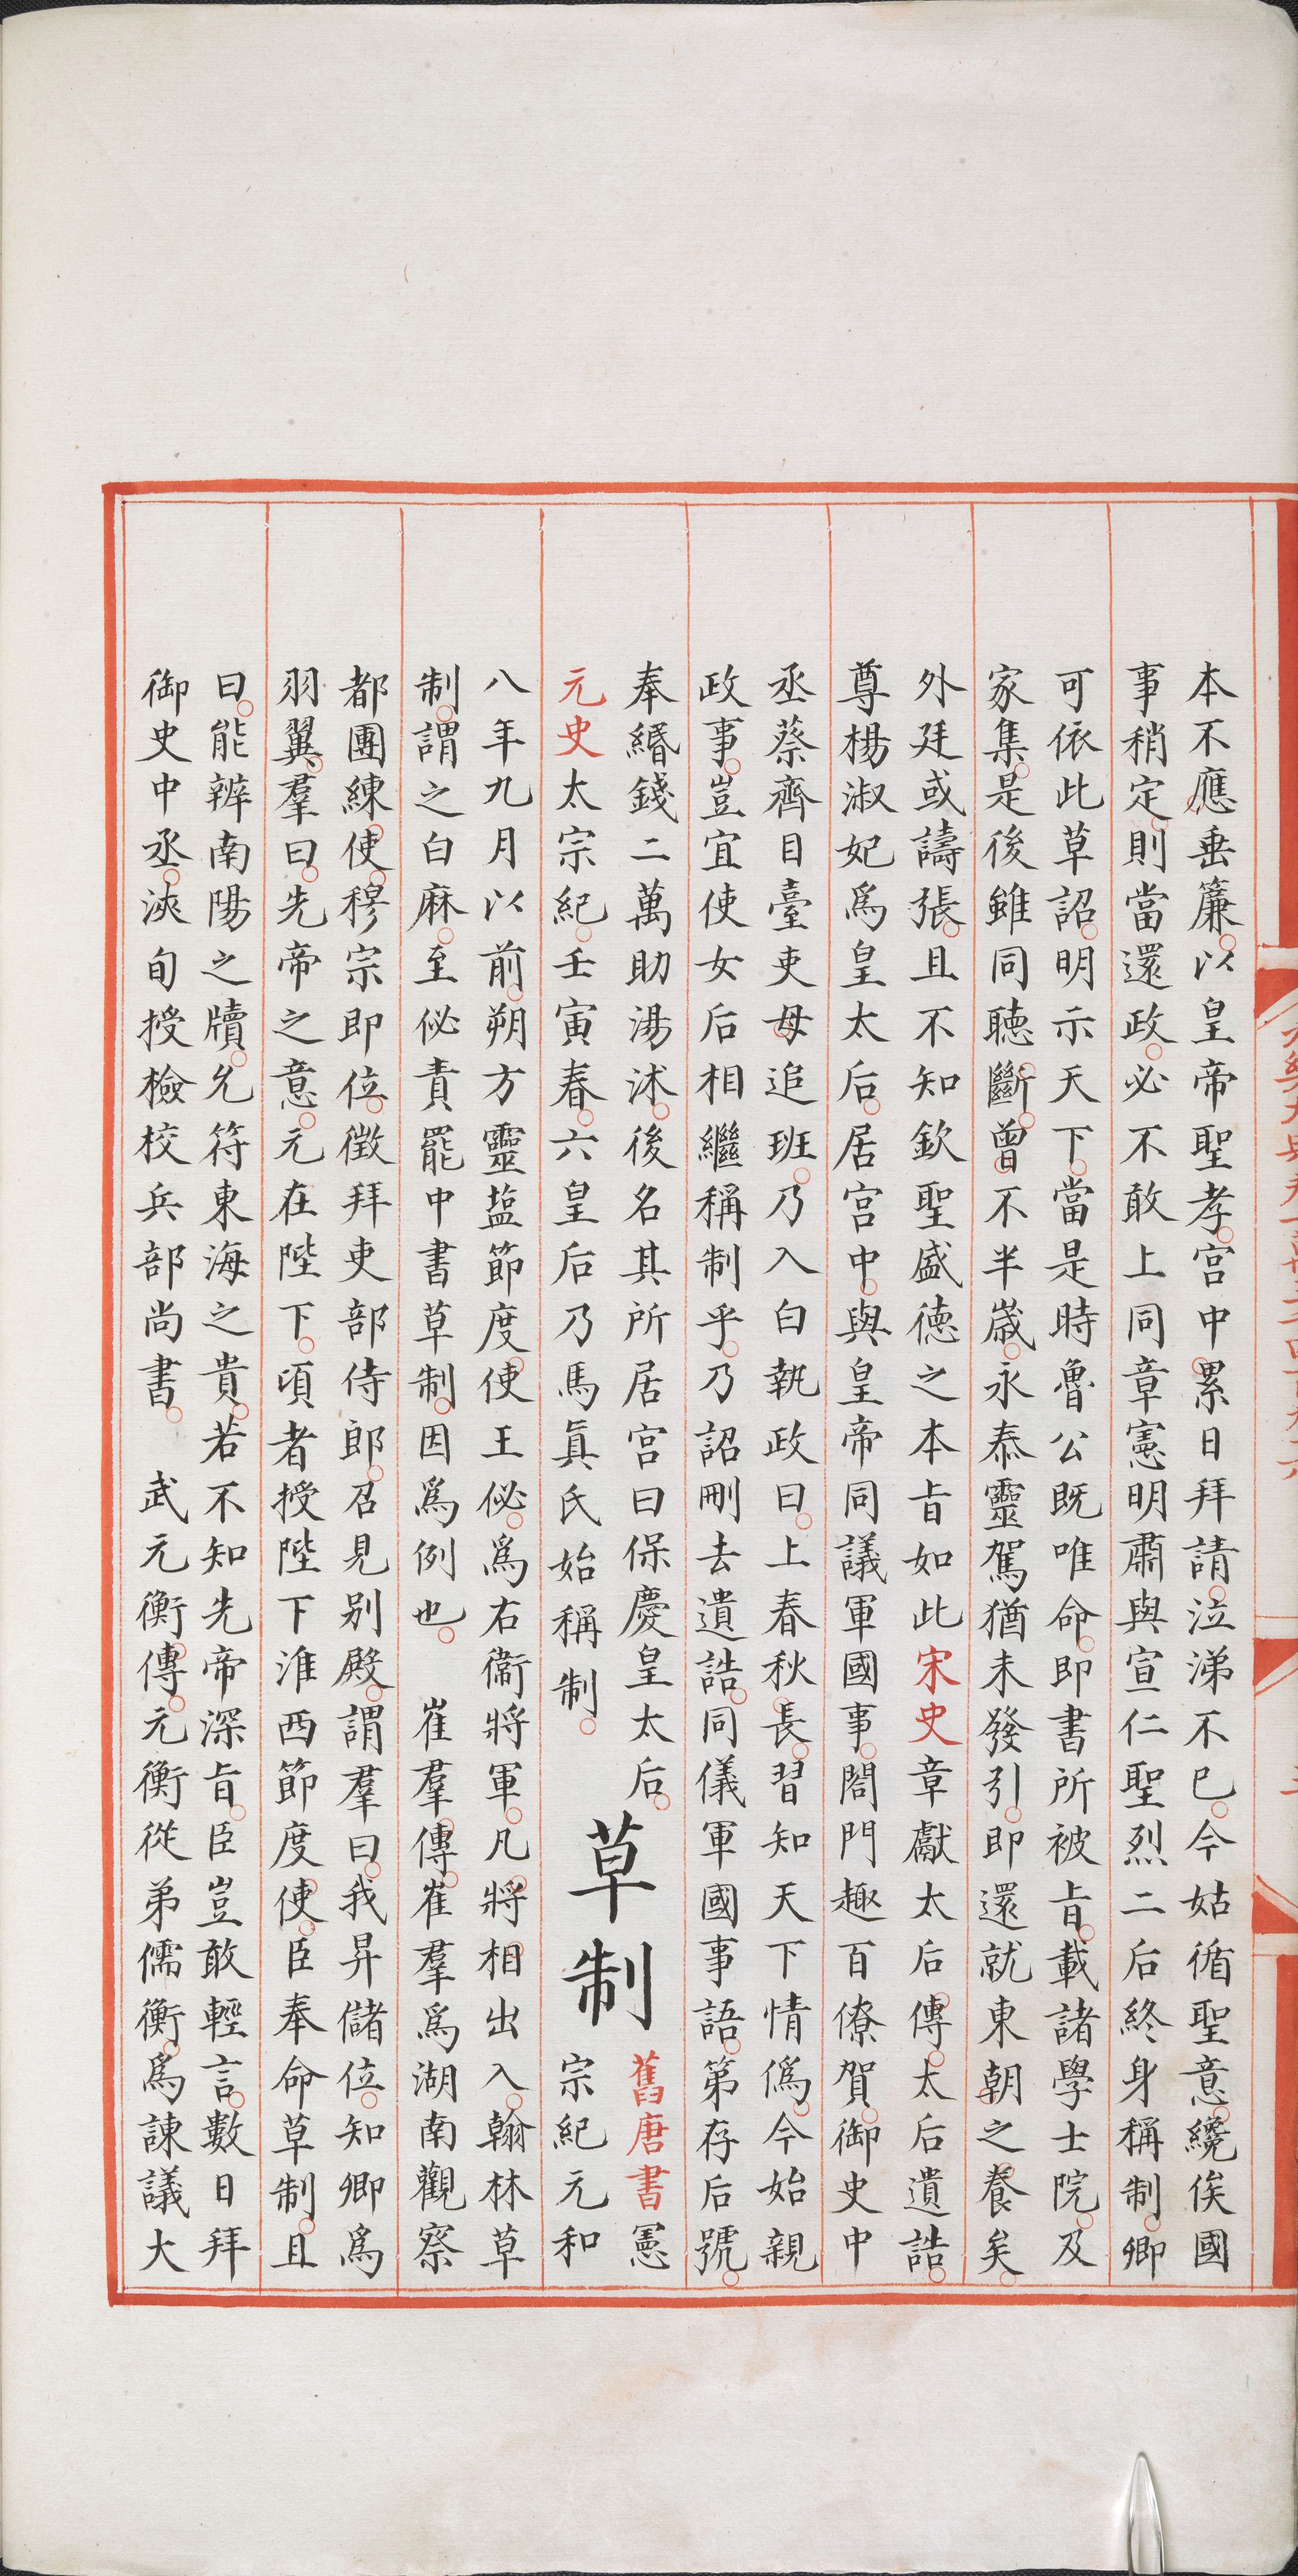 本不應垂簾以皇帝聖孝宮中累日拜請泣涕不已今姑循聖意纔俟國
事稍定則當還政必不敢上同章憲明肅與宣仁聖烈二后終身稱制卿
可依此草詔明示天下當是時魯公既唯命即書所被旨載諸學士院及
家集是後雖同聽斷曾不半歲永泰靈駕猶未發引即還就東朝之養矣
外廷或譸張且不知欽聖盛德之本旨如此宋史章獻太后傳太后遺誥
尊楊淑妃為皇太后居宮中與皇帝同議軍國事閤門趣百僚賀御史中
丞蔡齊目臺吏毋追班乃入白執政曰上春秋長習知天下情偽今始親
政事豈宜使女后相繼稱制乎乃詔刪去遺誥同儀軍國事語第存后號
奉緡錢二萬助湯沐後名其所居宮曰保慶皇太后
元史太宗紀壬寅春六皇后乃馬真氏始稱制
草制
舊唐書憲
宗紀元和
八年九月以前朔方靈塩節度使王佖為右衞將軍凡將相出入翰林草
制謂之白麻至佖責罷中書草制因為例也 崔羣傳崔羣為湖南觀察
都團練使穆宗即位徵拜吏部侍郎召見別殿謂羣曰我昇儲位知卿為
羽翼羣曰先帝之意元在陛下頃者授陛下淮西節度使臣奉命草制且
曰能辨南陽之牘允符東海之貴若不知先帝深旨臣豈敢輕言數日拜
御史中丞浹旬授檢校兵部尚書 武元衡傳元衡從弟儒衡為諫議大